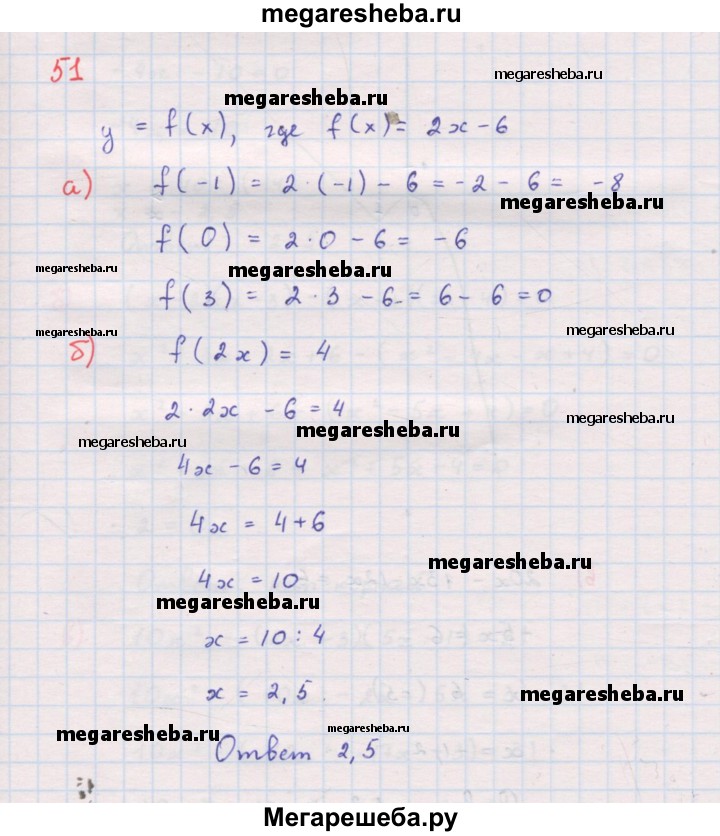 megaresheba.ru
51
megaresheba.ru
megaresheba.ru
y = f(x), где f(x) = 2x - 6
а) f(-1) = 2·(-1) - 6 = -2 - 6 = -8
megaresheba.ru
f(0) = 2·0 - 6 = -6
megaresheba.ru
megaresheba.ru
f(3) = 2·3 - 6 = 6 - 6 = 0
megaresheba.ru
megaresheba.ru
б) f(2x) = 4
2·2x - 6 = 4
megaresheba.ru
megaresheba.ru
megaresheba.ru
4x - 6 = 4
megaresheba.ru
4x = 4+6
megaresheba.ru
4x = 10
megaresheba.ru
x = 10 : 4
x = 2,5
megaresheba.ru
megaresheba.ru
megaresheba.ru
Ответ 2,5
Мегарешеба.ру